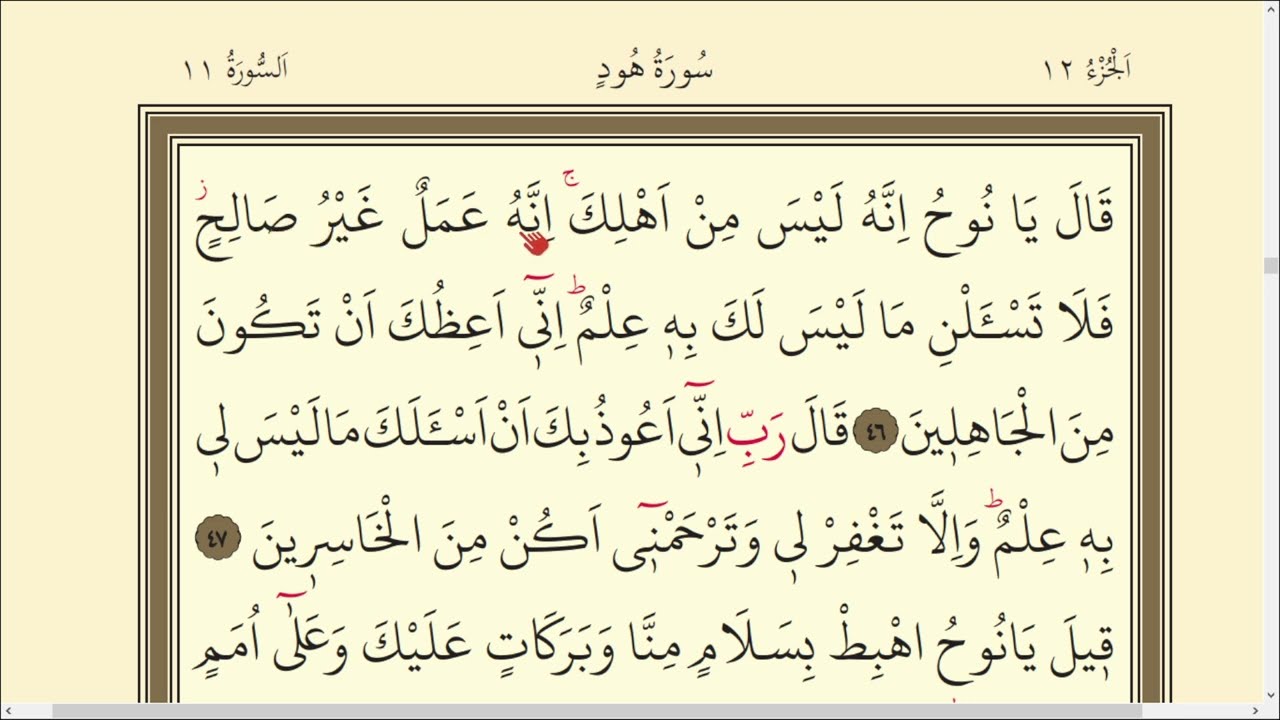 اَلْجُزْءُ ١٢ سُورَةُ هُودٍ اَلسُّورَةُ ١١
قَالَ يَا نُوحُ اِنَّهُ لَيْسَ مِنْ اَهْلِكَۚ اِنَّهُ عَمَلٌ غَيْرُ صَالِحٍۘ ز
فَلَا تَسْـَٔلْنِ مَا لَيْسَ لَكَ بِهٖ عِلْمٌؕ اِنّٖٓى اَعِظُكَ اَنْ تَكُونَ
مِنَ الْجَاهِلٖينَ ٤٦ قَالَ رَبِّ اِنّٖٓى اَعُوذُ بِكَ اَنْ اَسْـَٔلَكَ مَا لَيْسَ لٖى
بِهٖ عِلْمٌؕ وَاِلَّا تَغْفِرْ لٖى وَتَرْحَمْنٖٓى اَكُنْ مِنَ الْخَاسِرٖينَ ٤٧
قٖيلَ يَانُوحُ اهْبِطْ بِسَلَامٍ مِنَّا وَبَرَكَاتٍ عَلَيْكَ وَعَلٰٓى اُمَمٍ